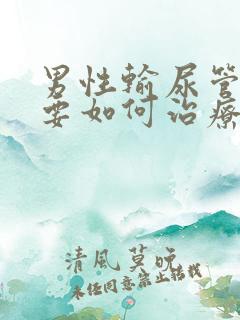 男性輸尿管
要如何治療
清風莫晚
未经同意禁止转载